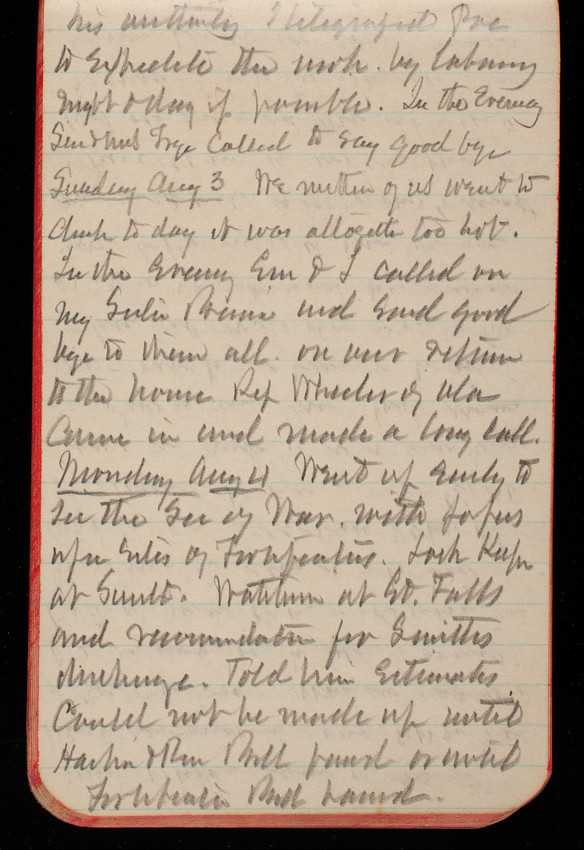 his authority I telegraphed Poe
to Expedite the work by laboring
night & day if possible. In the Evening
Gen & Mrs Frye called to say good bye
Sunday Aug 3 We neither of us went to
church to day it was altogether too hot.
In the Evening Em & I called on
and said good
bye to them all. on our return
to the house Rep Wheeler of Ala
Came in and made a long call.
Monday Aug 4 Went up early to
see the Sec of War. with papers
upon Sites of Fortifications. Lock Keeper
at Watchman at Gt. Falls
and recommendation for Smiths
discharge. Told him Estimates
Could not be made up until
Harbor & River Bill passed or until
Fortification Bill passed.